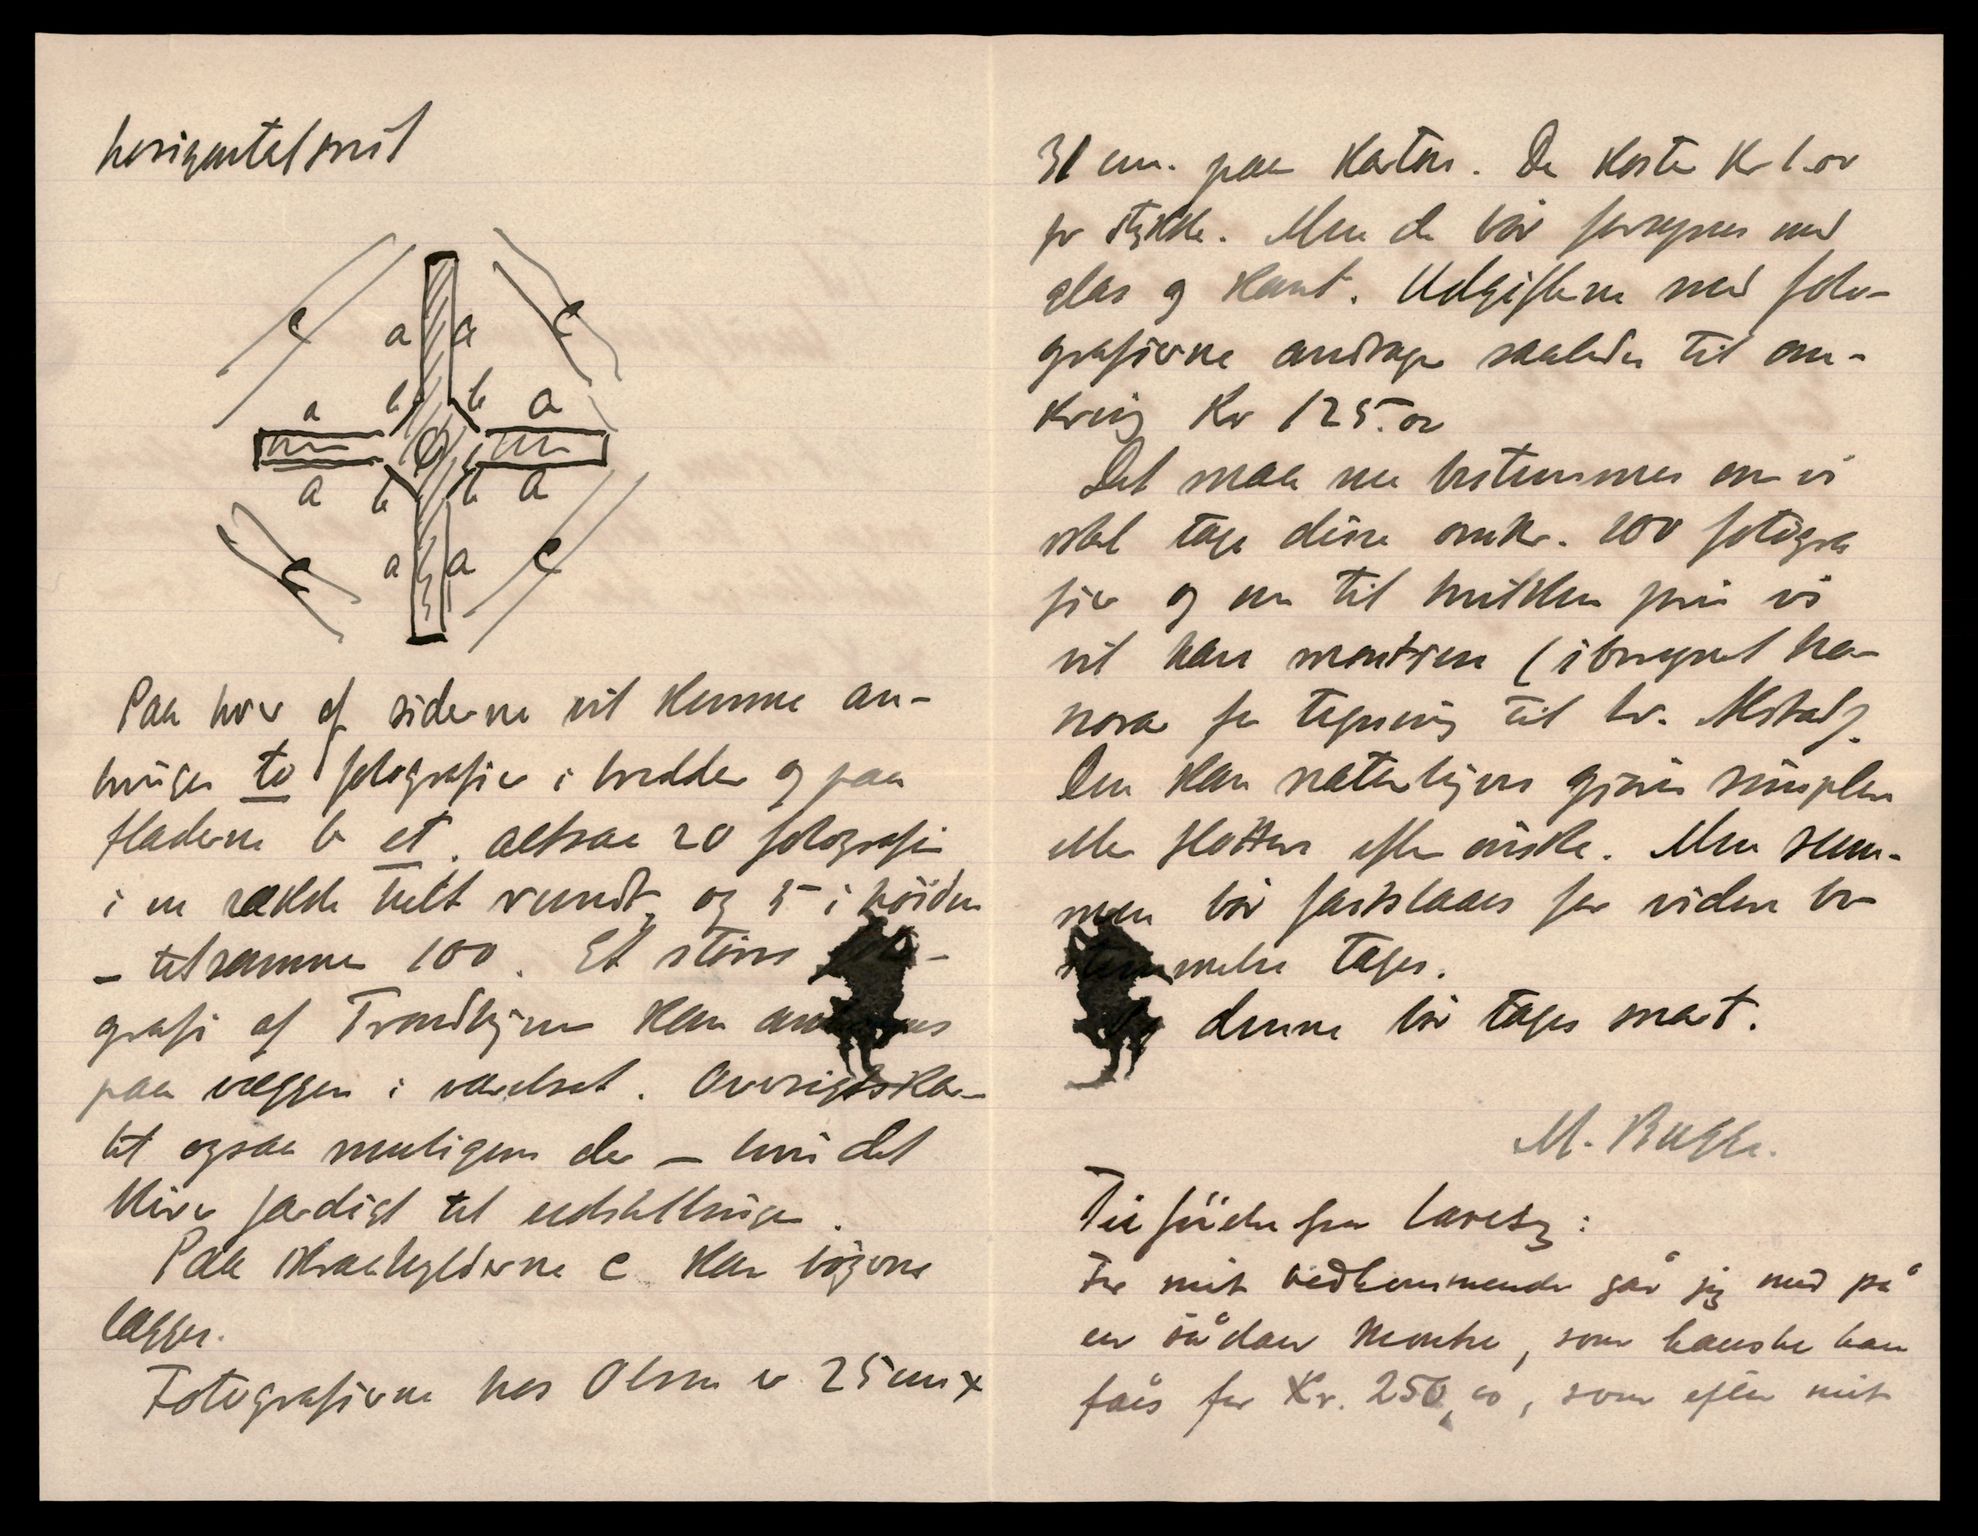 horizontalsnit
c
c
a
a
a
b
b
a
a
b
b
a
c
a
a
c
Paa hver af siderne vil kunne an-
bringes to fotografier i bredden og paa
fladerne b et. altsaa 20 fotografier
i en række helt rundt, og 5 i höiden
– tilsammen 100. Et större foto-
grafi af Trondhjem kan anbringes
paa væggen i værelset. Oversigtskar-
tet ogsaa muligens der – hvis det
bliver færdigt til udstillingen.
Paa skraahylderne c kan bøgerne
lægges.
Fotografierne hos Olsen er 25 cm x
31 cm. paa karton. De koster Kr 1.00
pr stykke. Men de bör forsynes med
glas og kant. Udgifterne med foto-
grafierne andrager saaledes til om-
kring Kr 125.00
Det maa nu bestemmes om vi
skal tage disse omkr. 100 fotogra
fier og om til hvilken pris vi
vil have montren (iberegnet ho-
norar for tegning til hr. Alstad).
Den kan naturligvis gjøres simplere
eller flottere efter ønske. Men sum-
men bör fastslaaes før videre be-
stemmelse tages.
Og denne bör tages snart.
M. Bugge.
Tilföielse fra
For mit vedkommende går jeg med på
en sådan Montre, som kanske kan
fåes for Kr. 250,00, som efter mit